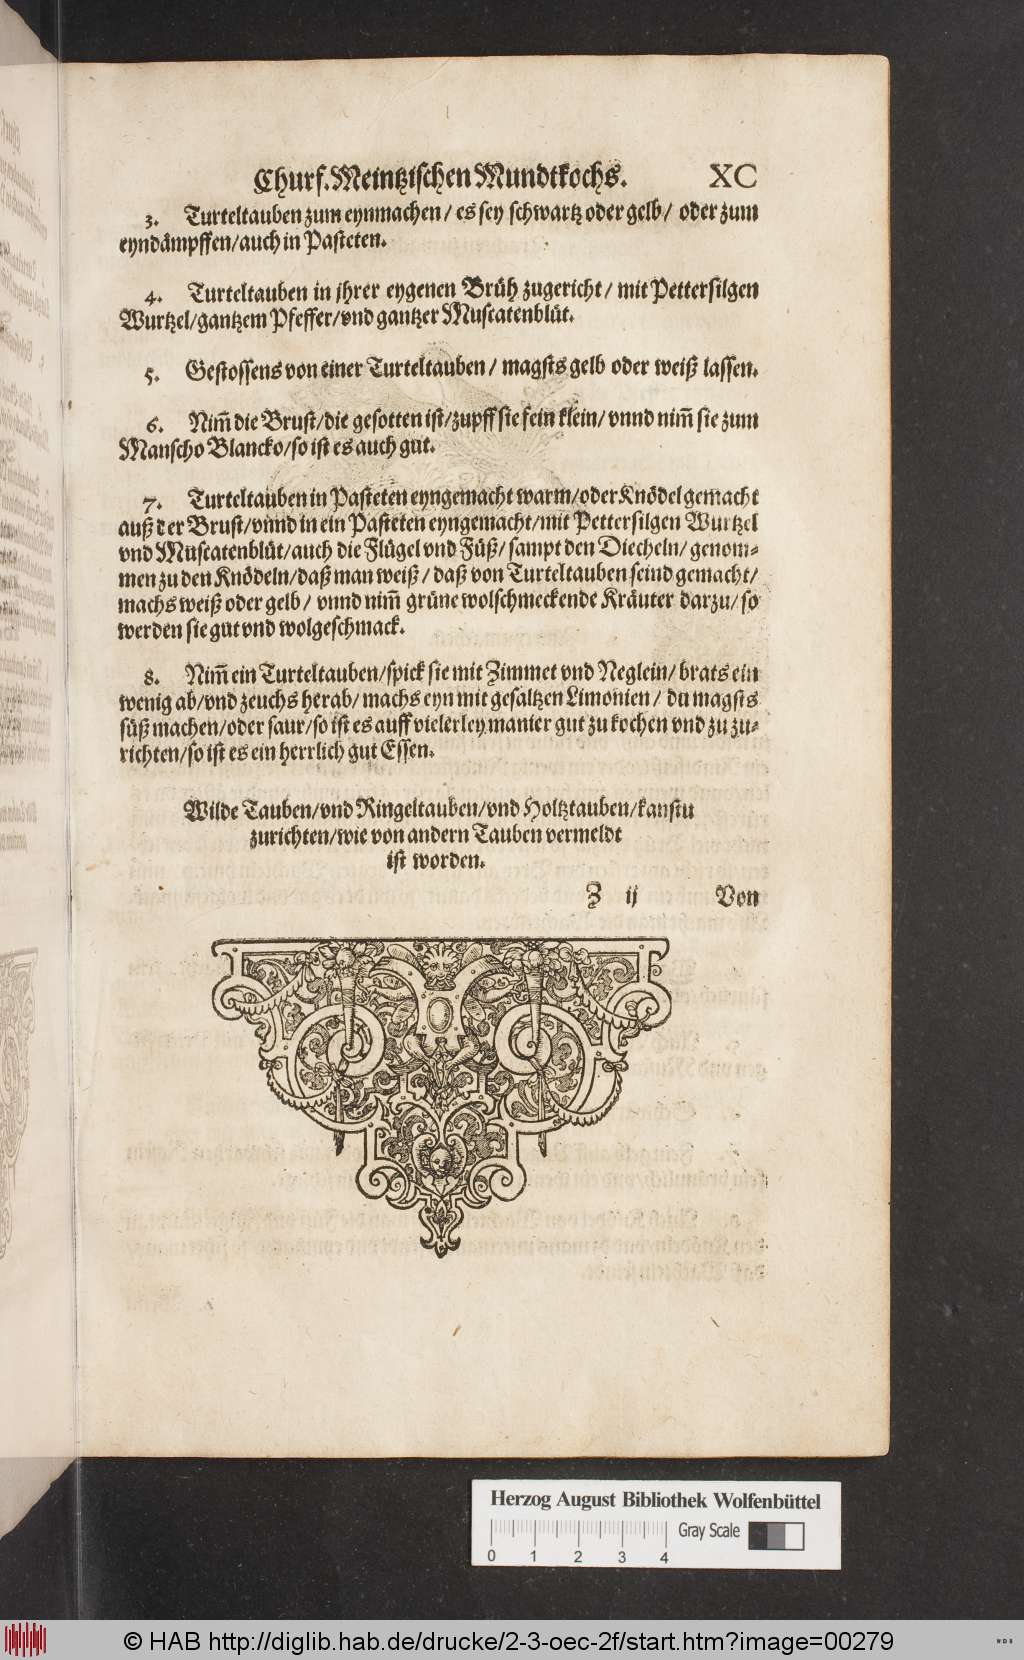 Churf. Meintzischen Mundtkochs. XC
3. Turteltauben zum eynmachen / es sey schwartz oder gelb / oder zum
eyndämpffen / auch in Pasteten.
4. Turteltauben in jhrer eygenen Brüh zugericht / mit Pettersilgen
Wurtzel / gantzem Pfeffer / vnd gantzer Muscatenblüt.
5. Gestossens von einer Turteltauben / magsts gelb oder weiß lassen.
6. Nim̃ die Brust / die gesotten ist / zupff sie fein klein / vnnd nim̃ sie zum
Manscho Blancko / so ist es auch gut.
7. Turteltauben in Pasteten eyngemacht warm / oder Knödel gemacht
auß der Brust / vnnd in ein Pasteten eyngemacht / mit Pettersilgen Wurtzel
vnd Muscatenblüt / auch die Flügel vnd Füß / sampt den Diecheln / genom⸗
men zu den Knödeln / daß man weiß / daß von Turteltauben seind gemacht /
machs weiß oder gelb / vnnd nim̃ grüne wolschmeckende Kräuter darzu / so
werden sie gut vnd wolgeschmack.
8. Nim̃ ein Turteltauben / spick sie mit Zimmet vnd Neglein / brats ein
wenig ab / vnd zeuchs herab / machs eyn mit gesaltzen Limonien / du magsts
süß machen / oder saur / so ist es auff vielerley manier gut zu kochen vnd zu zu⸗
richten / so ist es ein herrlich gut Essen.
Wilde Tauben / vnd Ringeltauben / vnd Holtztauben / kanstu
zurichten / wie von andern Tauben vermeldt
ist worden.
Z ij Von
Herzog August Bibliothek Wolfenbüttel
Gray Scale
0 1 2 3 4
© HAB http://diglib.hab.de/drucke/2-3-oec-2f/start.htm?image=00279